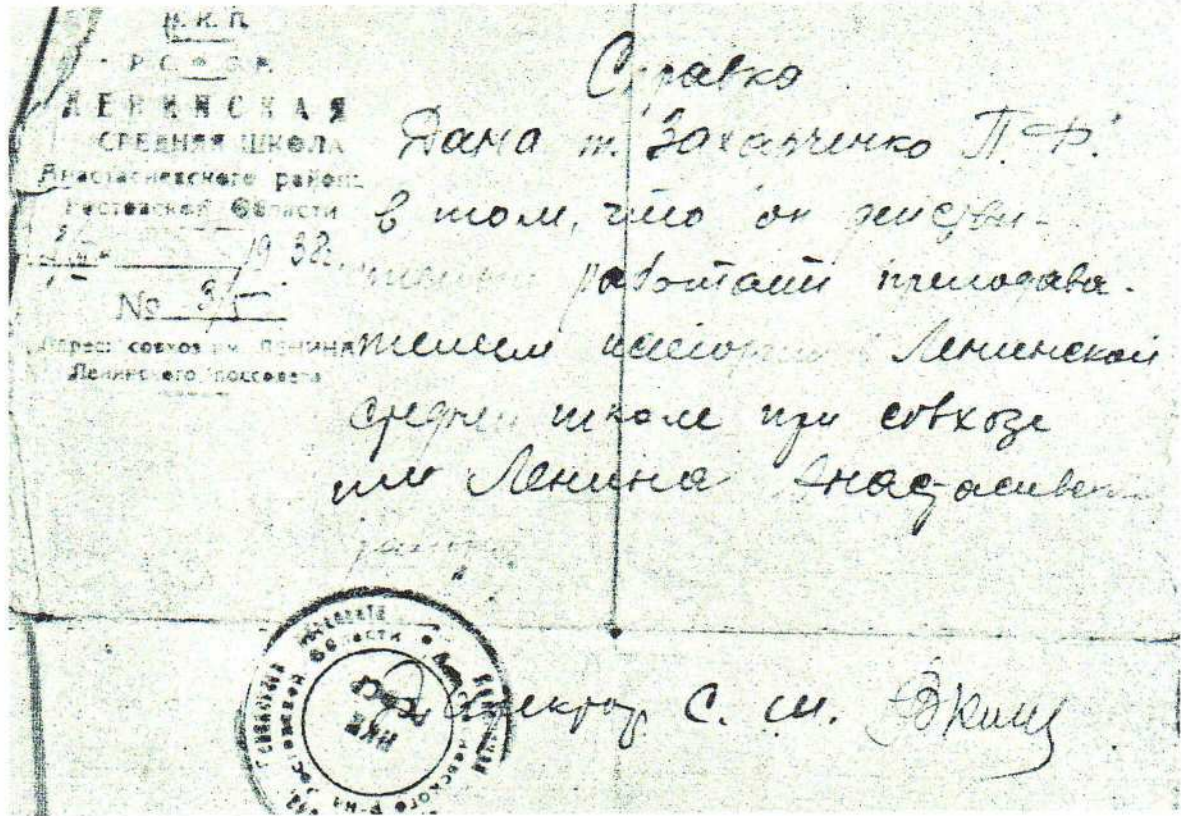 Н. К. П.
Р. С. Ф. С. Р.
ЛЕНИНСКАЯ
СРЕДНЯЯ ШКОЛА
Анастасиевского района
Ростовской области
1938г.
№ 315
Адрес: совхоз им. ЛЕНИНА
Ленинского поссовета
Справка
Дана т. Захарченко П. Ф.
в том, что он действи-
работает преподава-
телем Ленинской
средней школе при совхозе
им Ленина Анастасиевск
района
Директор С. Ш.
НКП